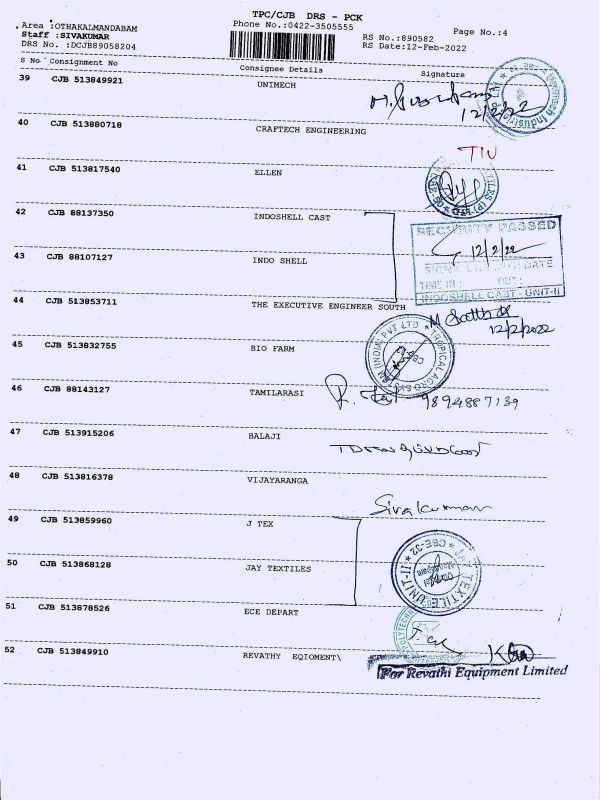 TPC/CJB DRS - PCK
Area :OTHAKALMANDABAM
Phone No.:0422-3505555
Page No.:4
Staff :SIVAKUMAR
RS No.:890582
DRS No. :DCJB89058204
RS Date:12-Feb-2022
S No Consignment No Consignee Details Signature
39 CJB 513849921 UNIMECH
12/2/22
40 CJB 513880718 CRAFTECH ENGINEERING
TIU
41 CJB 513817540 ELLEN
42 CJB 88137350 INDOSHELL CAST
SECURITY PASSED
12/2/22
43 CJB 88107127 INDO SHELL
TIME IN : OUT :
INDOSHELL CAST- UNIT-II
44 CJB 513853711 THE EXECUTIVE ENGINEER SOUTH
12/2/2022
45 CJB 513832755 BIO FARM
TROPICAL AGRO SYSTEM (INDIA) PVT LTD
46 CJB 88143127 TAMILARASI
9894887139
47 CJB 513915206 BALAJI
48 CJB 513816378 VIJAYARANGA
Sivakumar
49 CJB 513859960 J TEX
50 CJB 513868128 JAY TEXTILES
JAY TEXTILE UNIT-II
CBE-32
51 CJB 513878526 ECE DEPART
52 CJB 513849910 REVATHY EQIOMENT\
For Revathi Equipment Limited